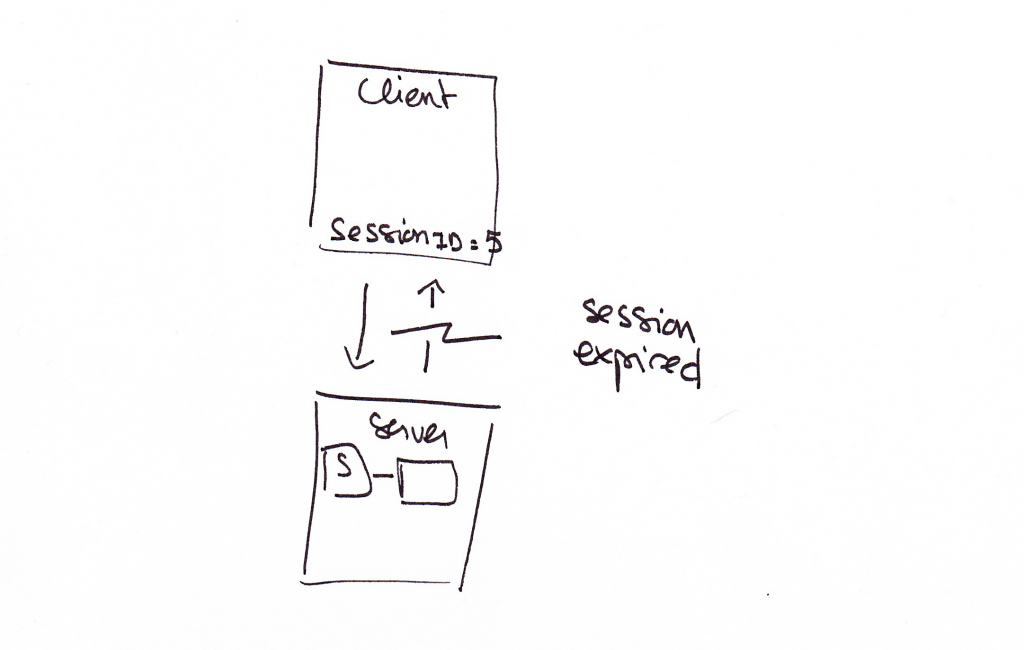 Client
Session ID = 5
session
expired
Server
S